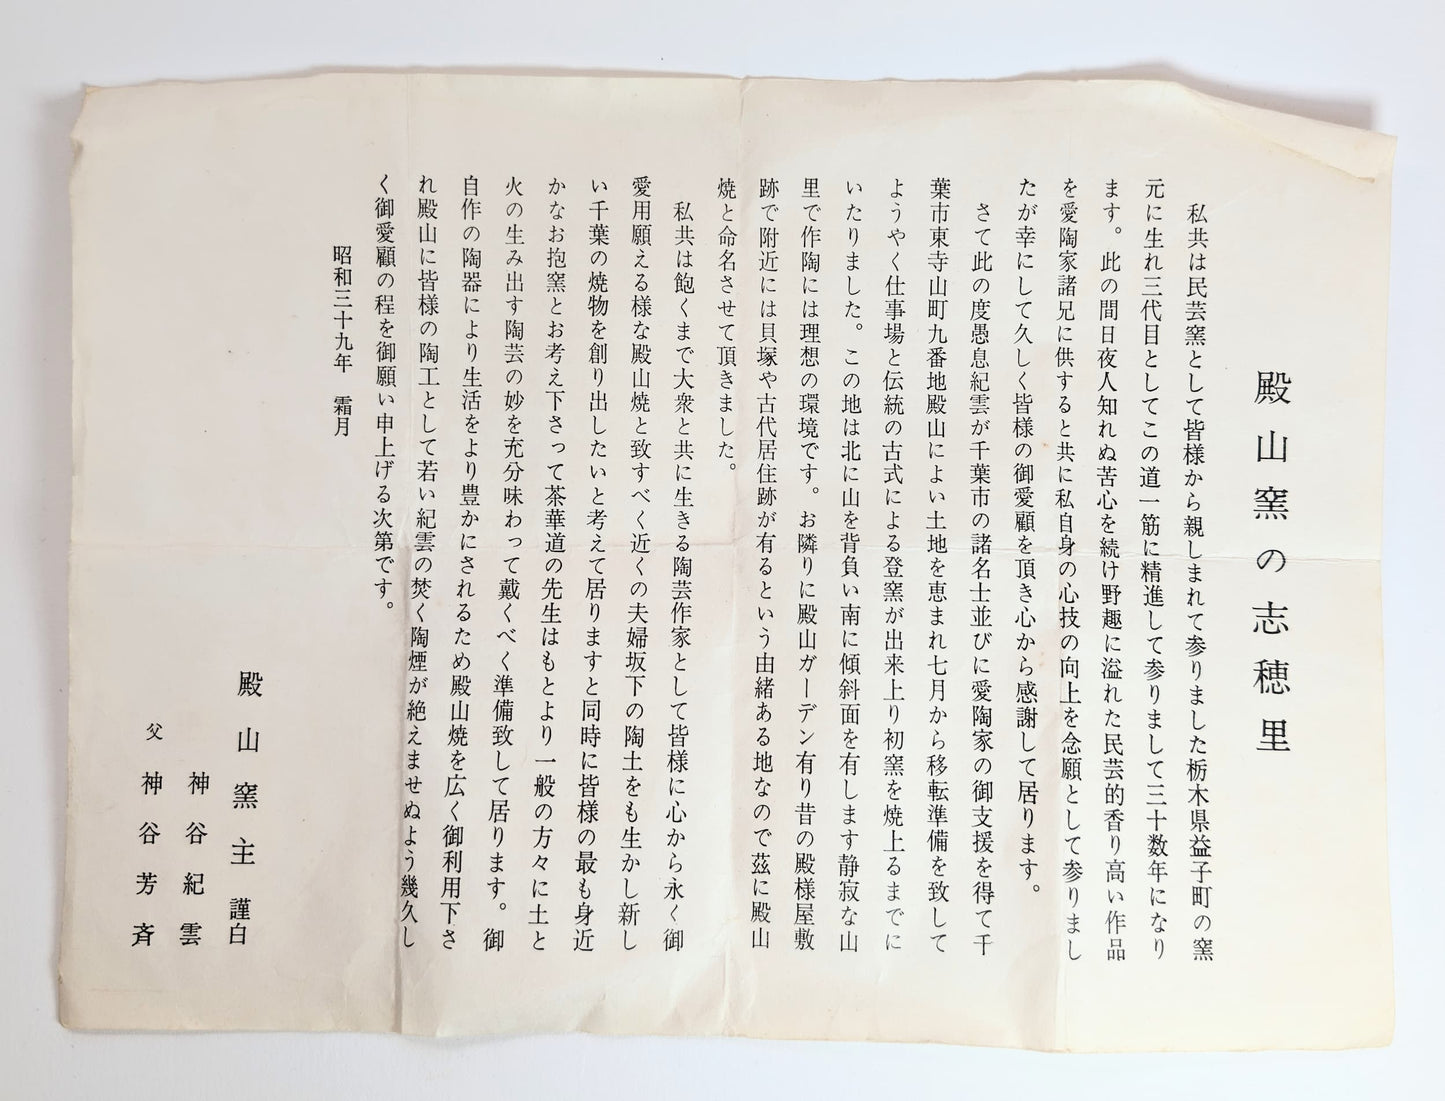 殿山窯の志穂里
私共は民芸窯として皆様から親しまれて参りました栃木県益子町の窯
元に生れ三代目としてこの道一筋に精進して参りまして三十数年になり
ます。此の間日夜人知れぬ苦心を続け野趣に溢れた民芸的香り高い作品
を愛陶家諸兄に供すると共に私自身の心技の向上を念願として参りまし
たが幸にして久しく皆様の御愛顧を頂き心から感謝して居ります。
さて此の度愚息紀雲が千葉市の諸名士並びに愛陶家の御支援を得て千
葉市東寺山町九番地殿山によい土地を恵まれ七月から移転準備を致して
ようやく仕事場と伝統の古式による登窯が出来上り初窯を焼上るまでに
いたりました。この地は北に山を背負い南に傾斜面を有します静寂な山
里で作陶には理想の環境です。お隣りに殿山ガーデン有り昔の殿様屋敷
跡で附近には貝塚や古代居住跡が有るという由緒ある地なので茲に殿山
焼と命名させて頂きました。
私共は飽くまで大衆と共に生きる陶芸作家として皆様に心から永く御
愛用願える様な殿山焼と致すべく近くの夫婦坂下の陶土をも生かし新し
い千葉の焼物を創り出したいと考えて居りますと同時に皆様の最も身近
かなお抱窯とお考え下さって茶華道の先生はもとより一般の方々に土と
火の生み出す陶芸の妙を充分味わって戴くべく準備致して居ります。御
自作の陶器により生活をより豊かにされるため殿山焼を広く御利用下さ
れ殿山に皆様の陶工として若い紀雲の焚く陶煙が絶えませぬよう幾久し
く御愛顧の程を御願い申上げる次第です。
昭和三十九年　霜月
殿山窯主　謹白
神谷紀雲
父　神谷芳斉